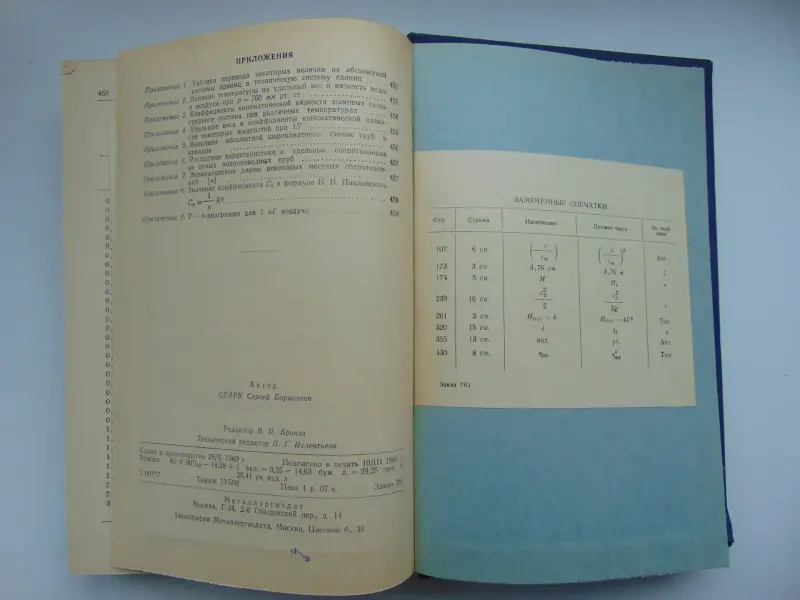 458
ПРИЛОЖЕНИЯ
Приложение 1. Таблица перевода некоторых величин из абсолютной
системы единиц в техническую систему единиц 455
Приложение 2. Влияние температуры на удельный вес и вязкость воды
и воздуха при p = 760 мм рт. ст. 455
Приложение 3. Коэффициенты кинематической вязкости дымовых газов
среднего состава при различных температурах 456
Приложение 4. Удельные веса и коэффициенты кинематической вязко-
сти некоторых жидкостей при 15°
Приложение 5. Величина абсолютной шероховатости стенок труб и
каналов 456
Приложение 6. Расходные характеристики и удельные сопротивления
водопроводных труб 457
Приложение 7. Эквивалентные длины некоторых местных сопротивле-
ний 457
Приложение 8. Значения коэффициента C₀ в формуле Н. Н. Павловского
C₀ = 1/n Rʸ 458
Приложение 9. T—s-диаграмма для 1 кГ воздуха 458
Автор
СТАРК Сергей Борисович
Редактор В. П. Бринза
Технический редактор П. Г. Ислентьева
Сдано в производство 28/X 1960 г. Подписано в печать 10/III 1961
Бумага 60 × 90¹/₁₆ = 14,38 + 1 вкл. = 0,25 = 14,63 бум. л. = 29,25 печ. л.
26,41 уч. изд. л.
Тираж 13.500 Цена 1 р. 07 к. Заказ
Металлургиздат
Москва, Г-34, 2-й Обыденский пер., д. 14
Типография Металлургиздата, Москва, Цветной б., 30
ЗАМЕЧЕННЫЕ ОПЕЧАТКИ
Стр. Строка Напечатано Должно быть По чьей вине
107 6 сн. Авт.
173 3 сн. 3,76 см 3,76 м
174 5 сн. H H₁
239 16 сн.
261 3 сн. Тип.
320 15 сн. l l₁
355 13 сн. вод. рт. Авт.
430 8 сн. Тип.
Заказ 761